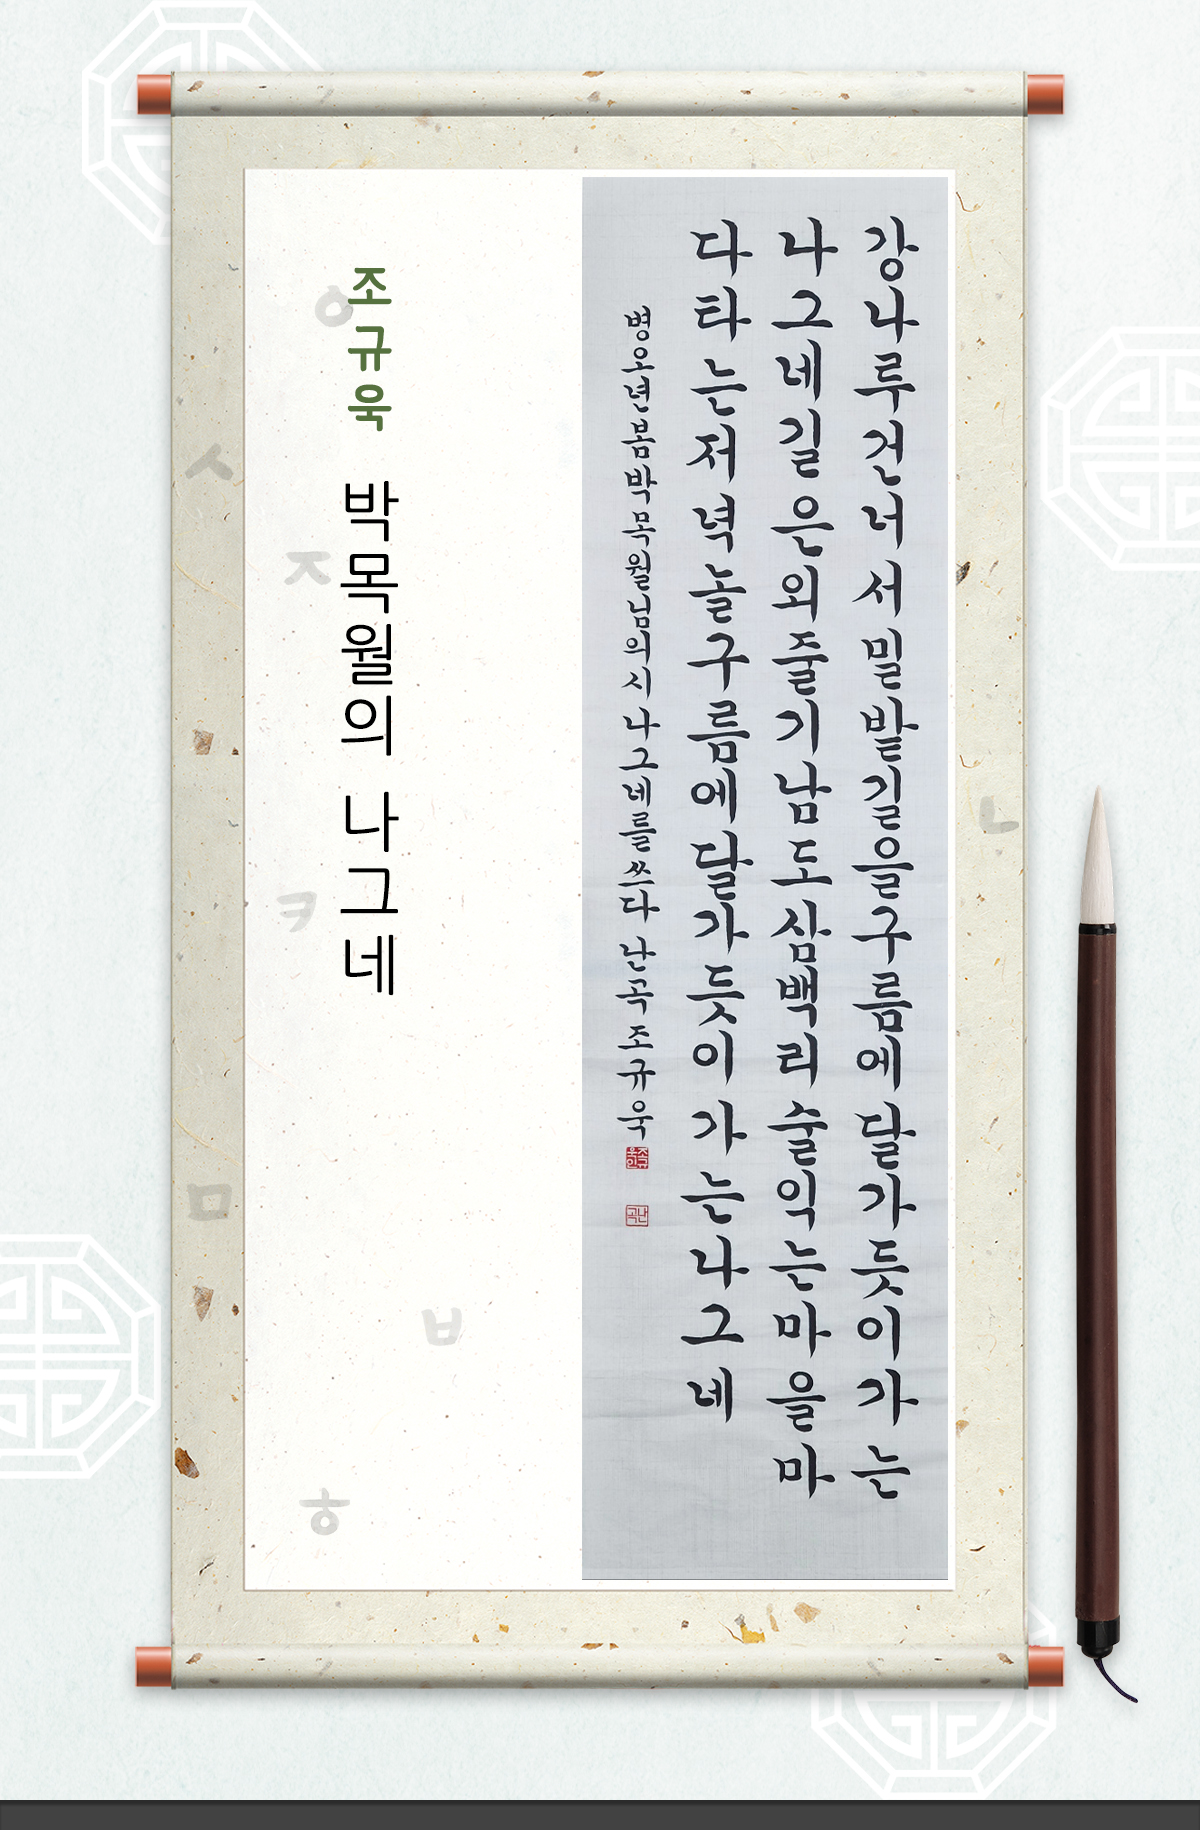 강나루건너서밀밭길을구름에달가듯이가는
나그네길은외줄기남도삼백리술익는마을마
다타는저녁놀구름에달가듯이가는나그네
병오년봄박목월님의시 나그네를쓰다 난곡 조규욱
조규욱인
난곡
조규욱 박목월의 나그네
ㅇ
ㅅ
ㅈ
ㄴ
ㅋ
ㅁ
ㅂ
ㅎ